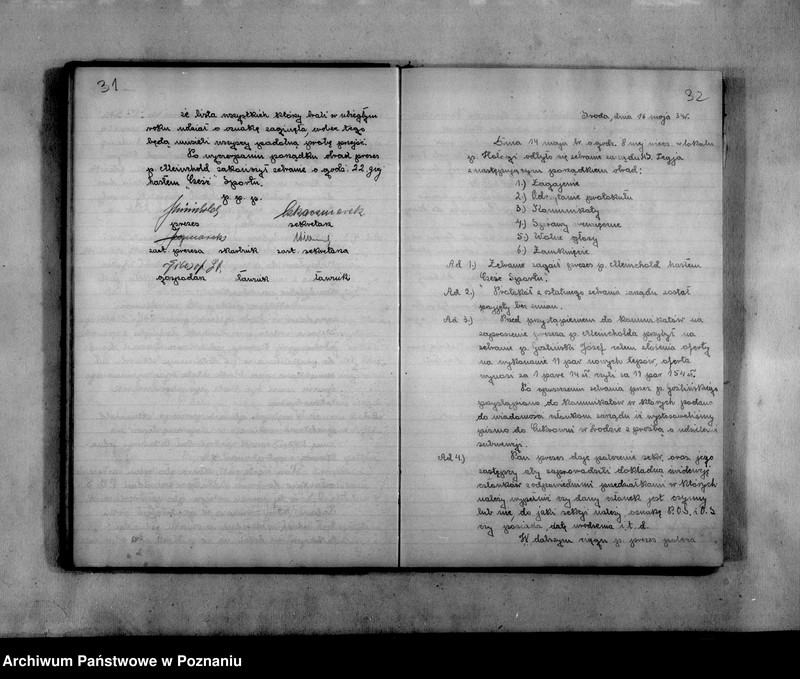 31
że lista wszystkich którzy brali w ubiegłym
roku udział o oznakę zaginęła wobec tego
będą musieli wszyscy zadatną próbę przejść.
Po wyczerpaniu porządku obrad prezes
p. Meinchold zakończył zebranie o godz. 22-giej
hasłem "Cześć Sportu".
p. p. p.
prezes sekretarz
zast. prezesa skarbnik zast. sekretarza
gospodarz ławnik ławnik
32
Środa, dnia 16 maja 34r.
Dnia 14 maja br. o godz. 8 mej wiecz. w lokalu
p. odbyło się zebranie zarządu
z następującym porządkiem obrad:
1.) Zagajenie
2.) Odczytanie protokułu
3.) Komunikaty
4.) Sprawy wewnętrzne
5.) Wolne głosy
6.) Zamknięcie
Ad 1.) Zebranie zagaił prezes p. Meinchold hasłem
"Cześć Sportu".
Ad 2.) Protokół z ostatniego zebrania zarządu został
przyjęty bez zmian.
Ad 3.) Przed przystąpieniem do komunikatów na
zaproszenie prezesa p. Meincholda przybył na
zebranie p. Józef celem złożenia oferty
na wykonanie 11 par nowych lepsów, oferta
wynosi za 1 parę 14 zł czyli za 11 par 154 zł.
Po opuszczeniu zebrania przez p.
przystąpiono do komunikatów w których podano
do wiadomości członkom zarządu iż wystosowaliśmy
pismo do Cukrowni w Środzie z prośbą o udzielenie
subwencji.
Ad 4.) Pan prezes daje polecenie sekr. oraz jego
zastępcy aby zaprowadzili dokładną ewidencję
członków z odpowiedniemi przedziałkami w których
należy wypełnić czy dany członek jest czynny
lub nie, do jakiej sekcji należy, oznakę P.O.S. i O.S.
czy posiada, datę urodzenia i. t. d.
W dalszym ciągu p. prezes poleca
Archiwum Państwowe w Poznaniu